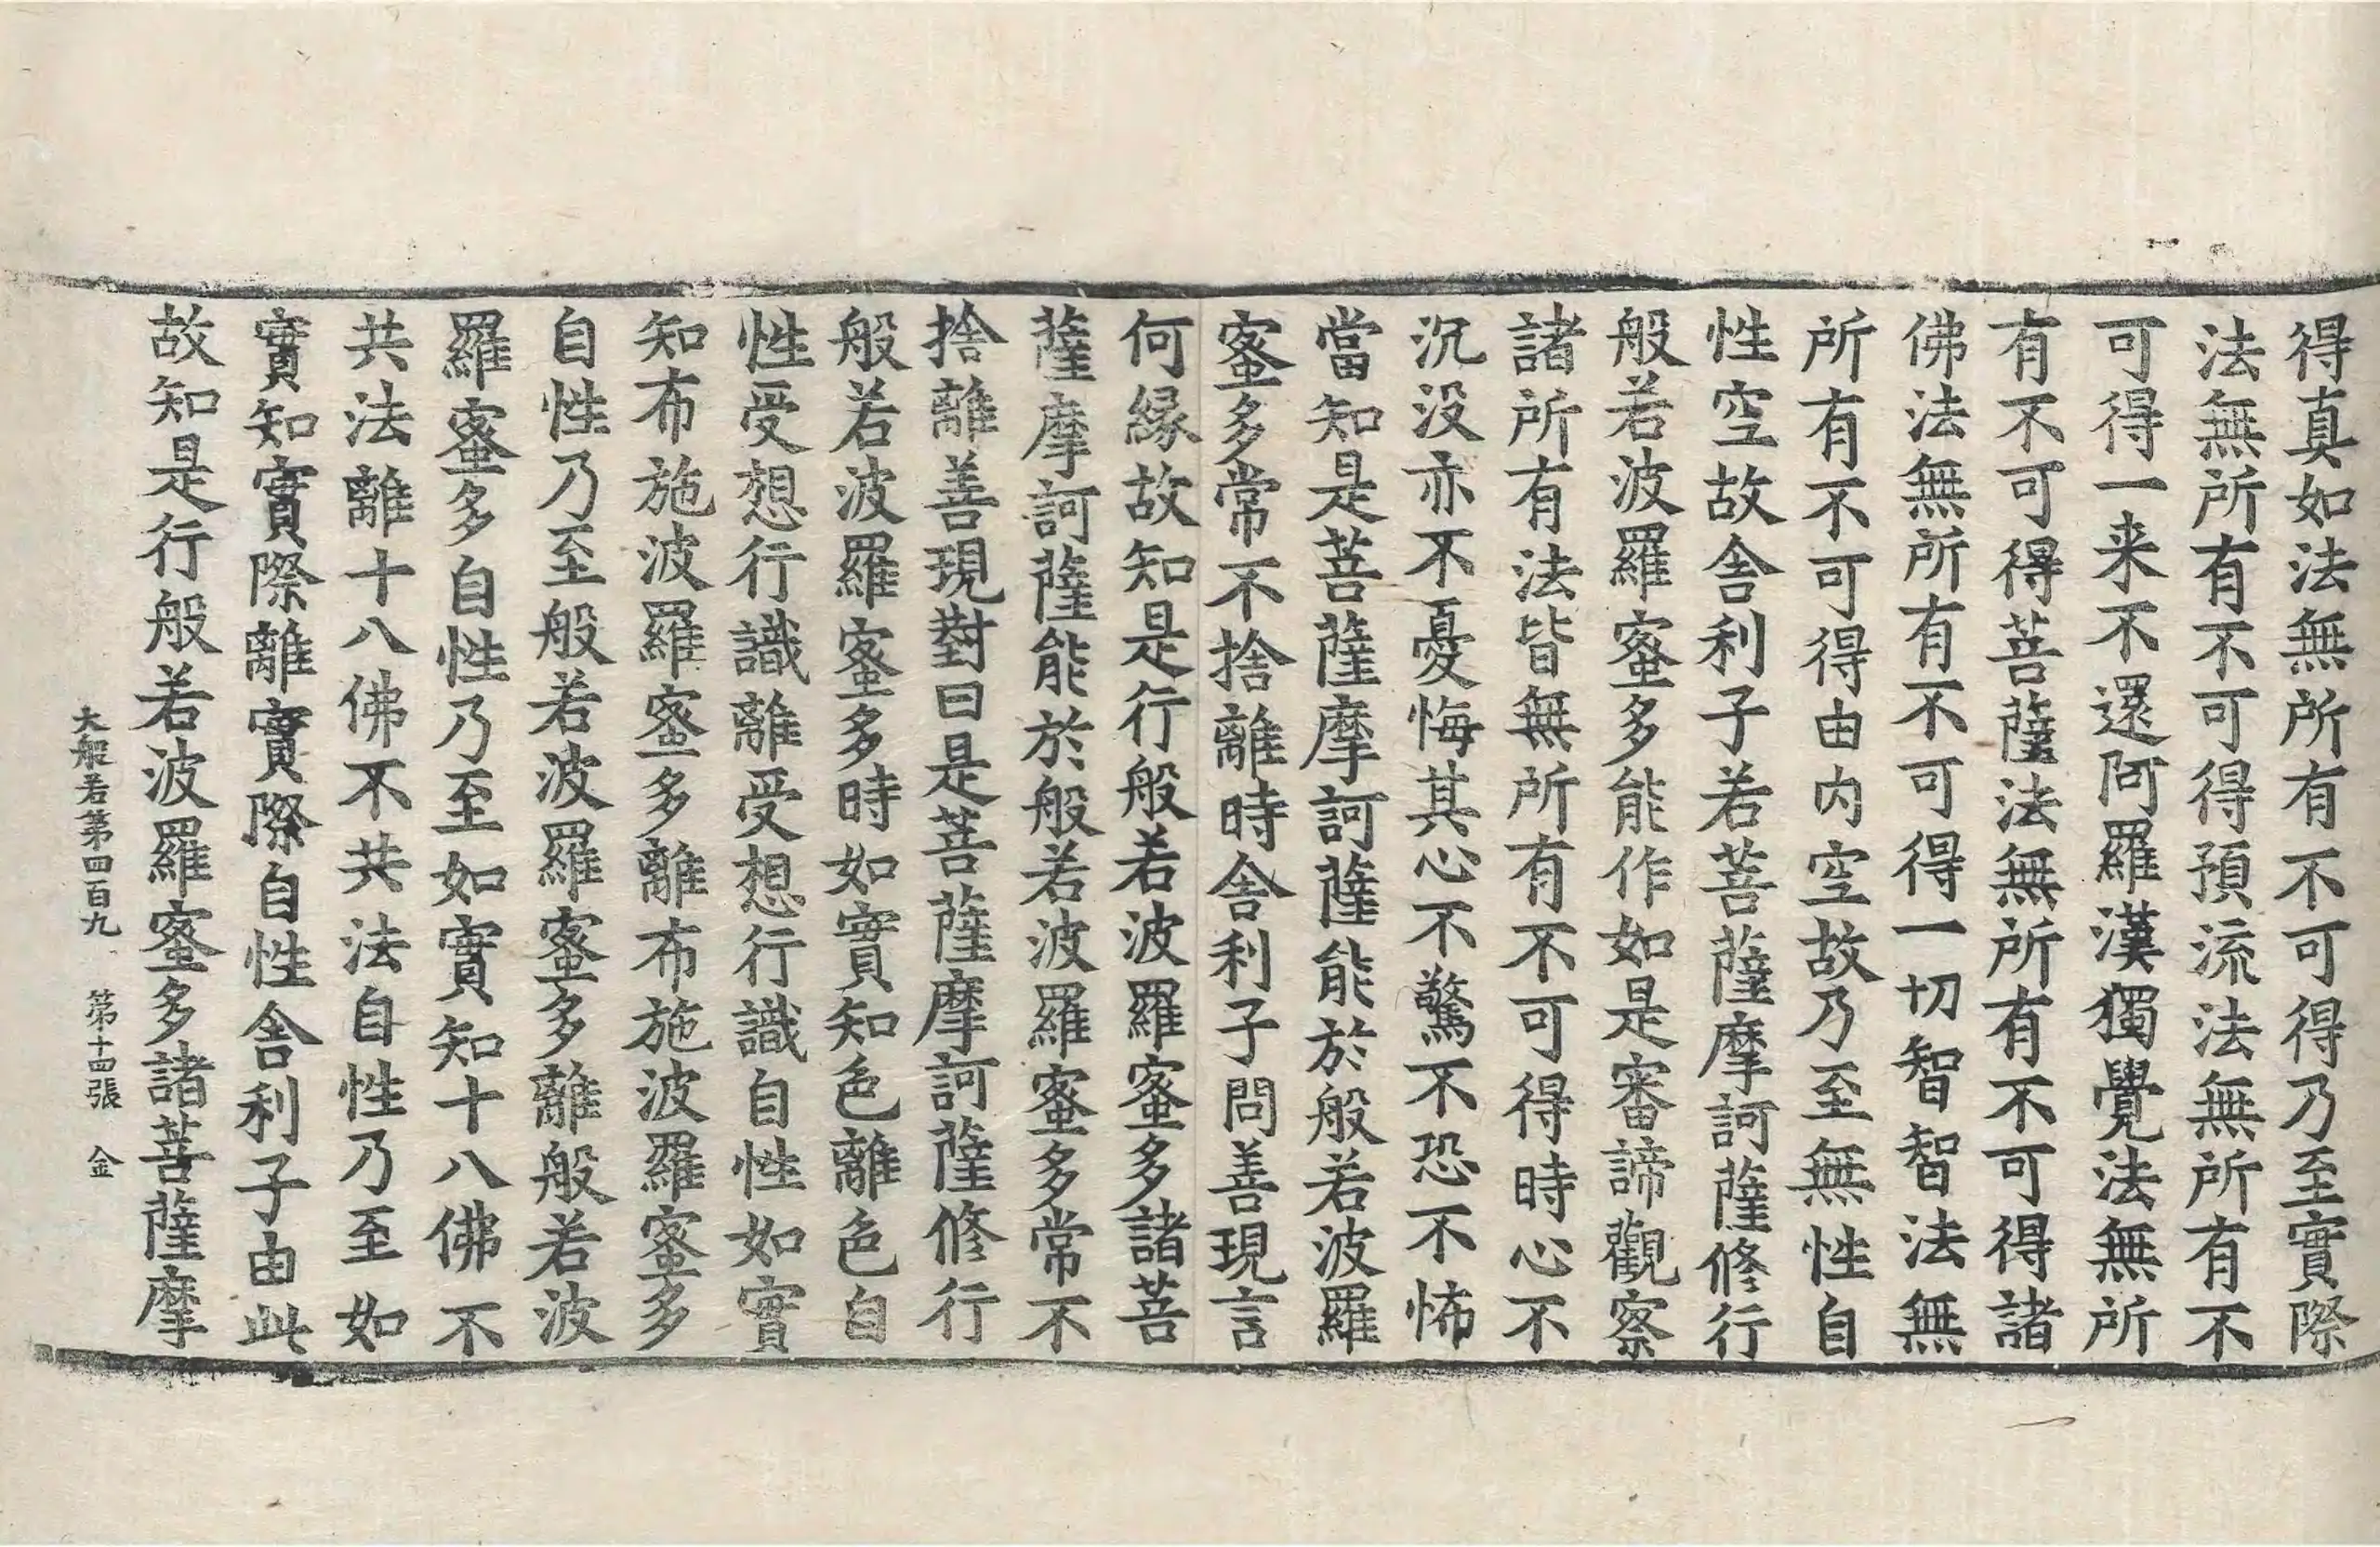 得真如法無所有不可得乃至實際
法無所有不可得預流法無所有不
可得一来不還阿羅漢獨覺法無所
有不可得菩薩法無所有不可得諸
佛法無所有不可得一切智智法無
所有不可得由内空故乃至無性自
性空故舎利子若菩薩摩訶薩修行
般若波羅蜜多能作如是審諦觀察
諸所有法皆無所有不可得時心不
沉没亦不憂悔其心不驚不恐不怖
當知是菩薩摩訶薩能於般若波羅
蜜多常不捨離時舎利子問善現言
何緣故知是行般若波羅蜜多諸菩
薩摩訶薩能於般若波羅蜜多常不
捨離善現對曰是菩薩摩訶薩修行
般若波羅蜜多時如實知色離色自
性受想行識離受想行識自性如實
知布施波羅蜜多離布施波羅蜜多
自性乃至般若波羅蜜多離般若波
羅蜜多自性乃至如實知十八佛不
共法離十八佛不共法自性乃至如
實知實際離實際自性舎利子由此
故知是行般若波羅蜜多諸菩薩摩
大般若第四百九 第十四張 金